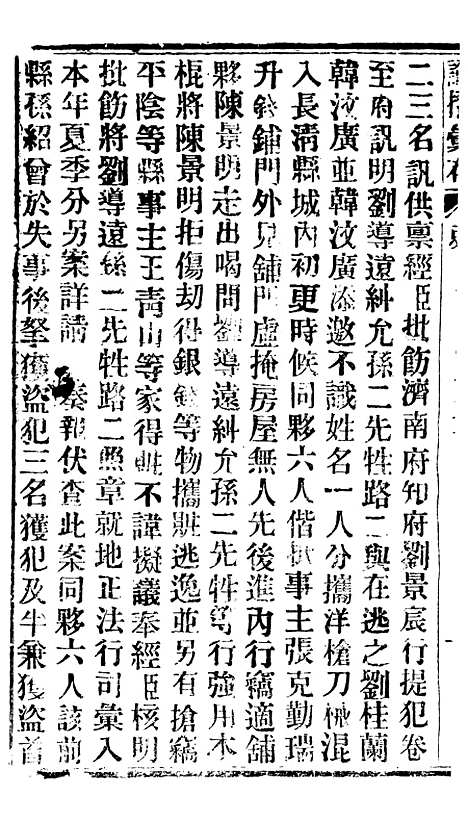 諭摺彙存
二三名訊供禀經臣批飭濟南府知府劉景宸行提犯卷
至府訊明劉導遠糾允孫二先牲路二與在逃之劉桂蘭
韓汶廣並韓汶廣添邀不識姓名一人分攜洋槍刀械混
入長淸縣城內初更時候同夥六人偕抵事主張克勤瑞
升錢鋪門外見鋪門虛掩房屋無人先後進內行竊適舖
夥陳景明走出喝問劉導遠糾允孫二先牲等行強用木
棍將陳景明拒傷劫得銀錢等物攜贓逃逸並另有搶竊
平陰等縣事主王靑山等家得贓不諱擬議奉經臣核明
批飭將劉導遠孫二先牲路二照章就地正法行司彙入
本年夏季分另案詳請　奏報伏查此案同夥六人該前
縣孫紹曾於失事後拏獲盜犯三名獲犯及半兼獲盜首